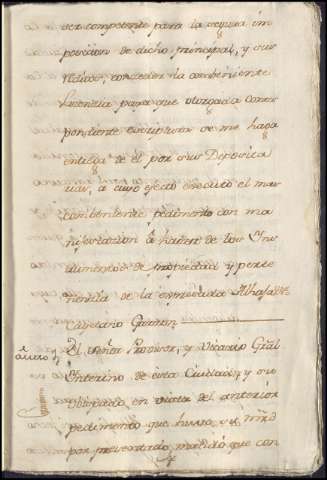 ser competente para la segura im
posicion de dicho principal, y sus
reditos, conceder la combeniente
Licencia para que otorgada corres
pondiente escriptura se me haga
entrega de el por sus Deposita
rios, a cuyo efecto produsco el mas
combeniente pedimento con ma
nifestacion de los Yns
trumentos de propiedad y perte
nencia de la expresada Alhaja
Cayetano Guzman
Auto El Señor Provisor, y Vicario Gral
Ynterino de esta Ciudad, y su
obispado, en vista del anterior
pedimento que huvo, su mrd
por presentado, mandó que con